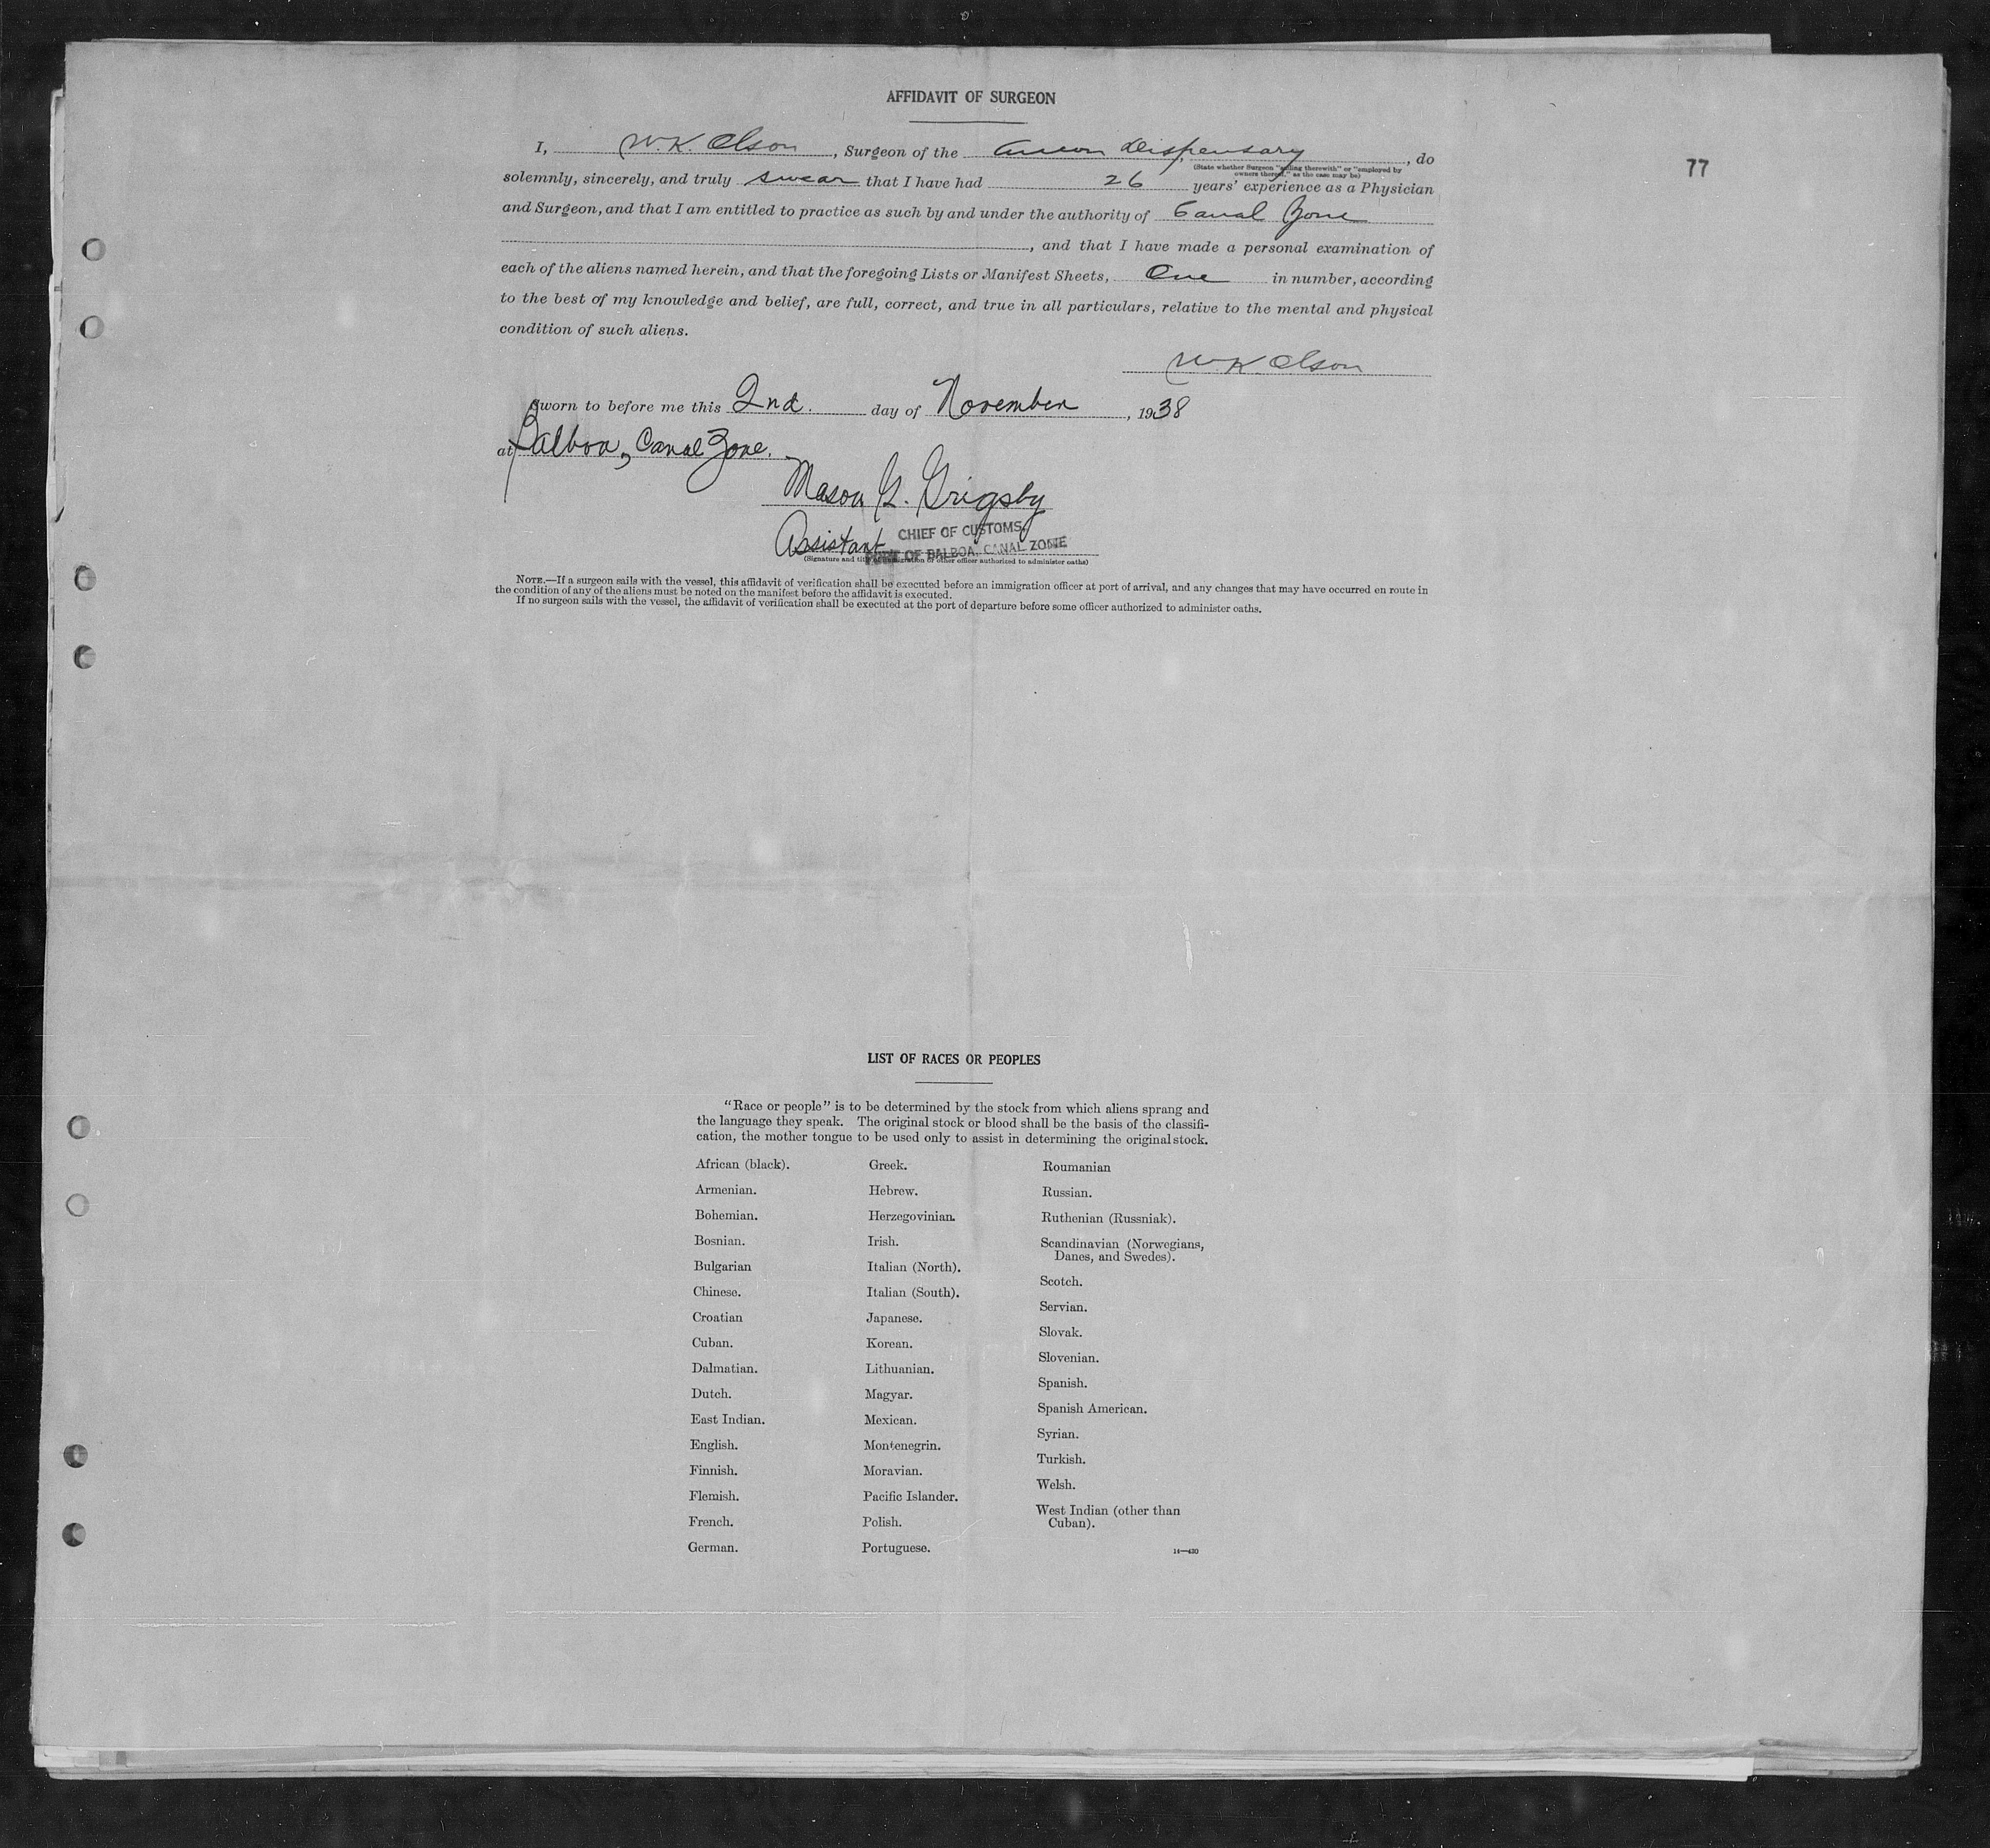 AFFIDAVIT OF SURGEON
77
I, W. K. Olson, Surgeon of the Ancon Dispensary, do
(State whether Surgeon "sailing therewith" or "employed by
owners thereof," as the case may be)
solemnly, sincerely, and truly swear that I have had 26 years' experience as a Physician
and Surgeon, and that I am entitled to practice as such by and under the authority of Canal Zone
, and that I have made a personal examination of
each of the aliens named herein, and that the foregoing Lists or Manifest Sheets, One in number, according
to the best of my knowledge and belief, are full, correct, and true in all particulars, relative to the mental and physical
condition of such aliens.
W. K. Olson
Sworn to before me this 2nd. day of November, 1938
at Balboa, Canal Zone.
Mason G. Grigsby
Assistant CHIEF OF CUSTOMS,
PORT OF BALBOA, CANAL ZONE
(Signature and title of immigration or other officer authorized to administer oaths)
NOTE.—If a surgeon sails with the vessel, this affidavit of verification shall be executed before an immigration officer at port of arrival, and any changes that may have occurred en route in
the condition of any of the aliens must be noted on the manifest before the affidavit is executed.
If no surgeon sails with the vessel, the affidavit of verification shall be executed at the port of departure before some officer authorized to administer oaths.
LIST OF RACES OR PEOPLES
"Race or people" is to be determined by the stock from which aliens sprang and
the language they speak. The original stock or blood shall be the basis of the classifi-
cation, the mother tongue to be used only to assist in determining the original stock.
African (black).
Armenian.
Bohemian.
Bosnian.
Bulgarian
Chinese.
Croatian
Cuban.
Dalmatian.
Dutch.
East Indian.
English.
Finnish.
Flemish.
French.
German.
Greek.
Hebrew.
Herzegovinian.
Irish.
Italian (North).
Italian (South).
Japanese.
Korean.
Lithuanian.
Magyar.
Mexican.
Montenegrin.
Moravian.
Pacific Islander.
Polish.
Portuguese.
Roumanian
Russian.
Ruthenian (Russniak).
Scandinavian (Norwegians,
Danes, and Swedes).
Scotch.
Servian.
Slovak.
Slovenian.
Spanish.
Spanish American.
Syrian.
Turkish.
Welsh.
West Indian (other than
Cuban).
14—430